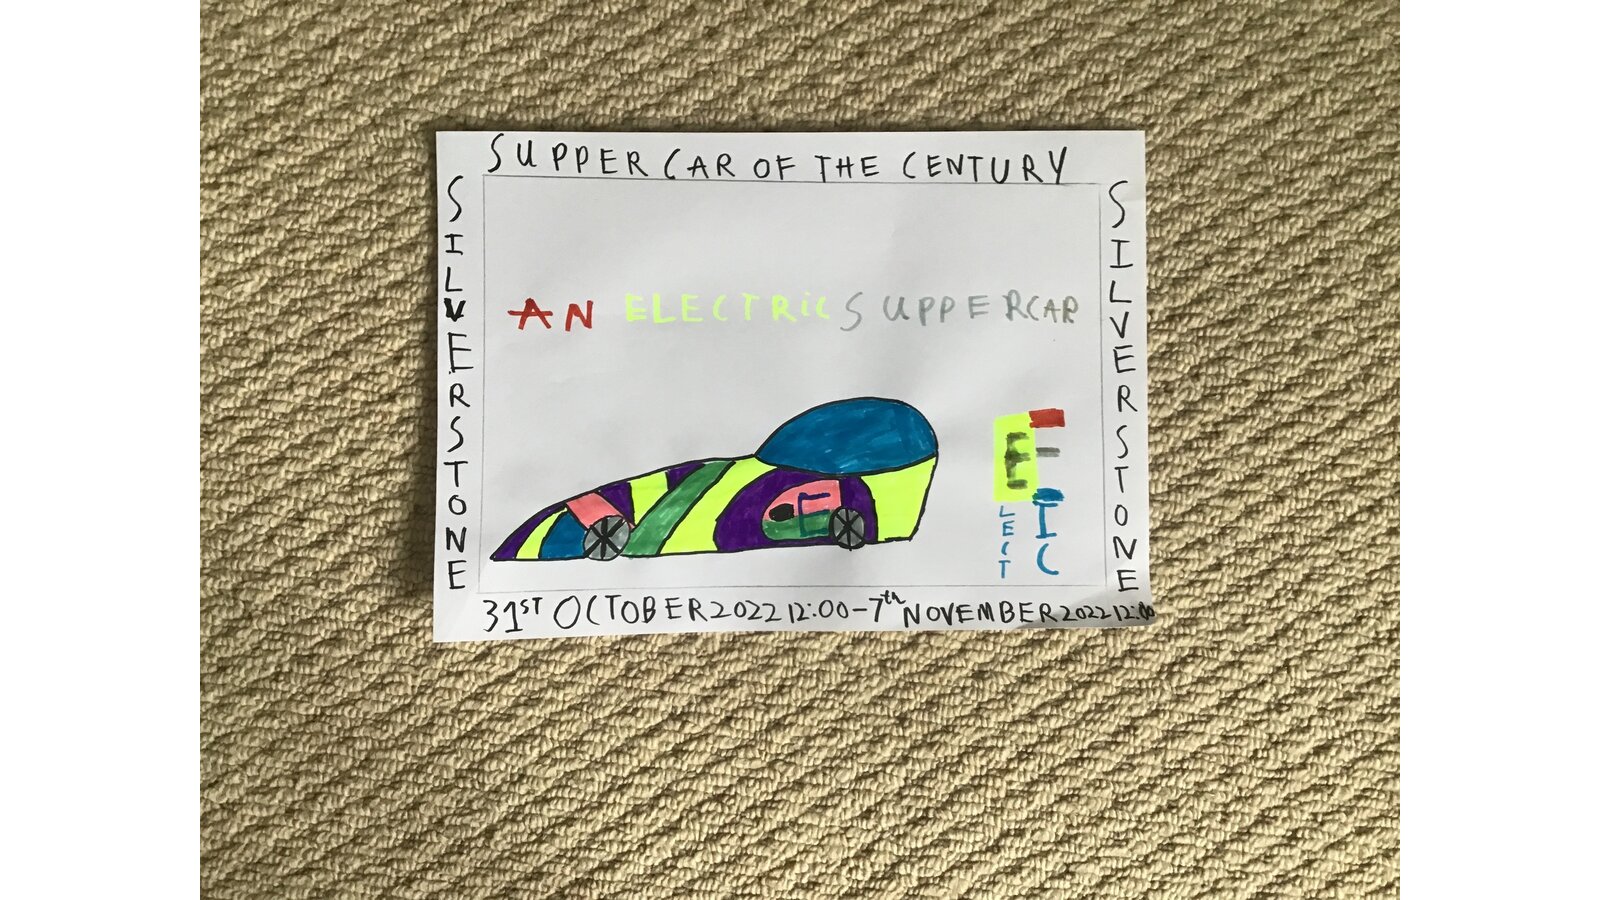 SUPPER CAR OF THE CENTURY
SILVERSTONE
SILVERSTONE
AN ELECTRIC SUPPERCAR
E
E
LECT
IC
31ST OCTOBER 2022 12:00-7th NOVEMBER 2022 12:00